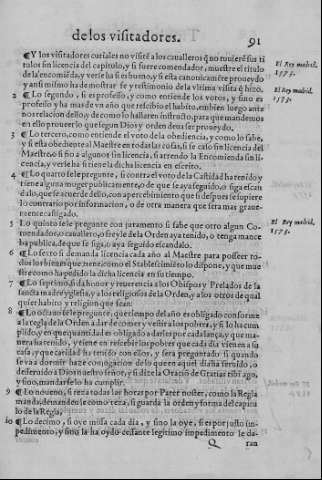 de los visitadores. 91
¶ Y los visitadores curiales no visitē a los caualleros q̃ no tuuierē sus ti
tulos sin licencia del capitulo, y si fuere comendador, muestre el titulo
de la encomiēda, y verse ha si es bueno, y si esta canonicamẽte proueydo
y ansi mismo ha de mostrar fe y testimonio de la vltima visita q̃ hizo.
El Rey madrid.
1573.
2 ¶ Lo segundo, si es professo, y como entiende los votos, y sino es
professo y ha mas de vn año que rescibio el habito, embien luego ante
nos relacion dello y de como lo hallaren instructo, para que mandemos
en ello proueer lo que segun Dios y orden deua ser proueydo.
El Rey madrid.
1573.
3 ¶ Lo tercero, como entiende el voto de la obediencia, y como lo sabe,
y si esta obediente al Maestre en todas las cosas, si se caso sin licencia del
Maestre, o si fio a algunos sin licencia, si arrendo la Encomienda sin li-
cencia, y verse ha si tiene la dicha licencia en escrito.
4 ¶ Lo quarto se le pregunte, si contra el voto de la Castidad ha tenido y
tiene alguna muger publicamente, o de que se aya seguido, o siga escan
dalo, que se acuerde dello, con apercebimiento que si despues se supiere
lo contrario por informacion, o de otra manera que sera mas graue-
mente castigado.
5 Lo quinto se le pregunte con juramento si sabe que otro algun Co-
mendador, o cauallero, o freyle de la Orden aya tenido, o tenga mance
ba publica, de que se siga, o aya seguido escandalo.
El Rey madrid.
1573.
6 ¶ Lo sexto si demanda licencia cada año al Maestre para posseer to-
dos los bienes que tiene como el Establescimiẽto lo dispone, y que mue
stre como ha pedido la dicha licencia en su tiempo.
7 ¶ Lo septimo, si da honor y reuerencia a los Obispos y Prelados de la
sancta madre yglesia, y a los religiosos de la Orden, y a los otros de qual
quier habito y religion que sean.
8 ¶ Lo octauo se le pregunte, que tiempo del año es obligado conforme
a la regla de la Orden a dar de comer y vestir a los pobres, y si lo ha cum
plido, y en que quantidad es obligado a darles por cada lança, y que ma
nera ha tenido, y tiene en rescebir los pobres que cada dia vienen a su
casa, y que caridad ha tenido con ellos, y sera preguntado si quando
se va a dormir haze conoscacion de lo que en aquel dia ha seruido, o
deseruido a Dios nuestro señor, y si dize la Oracion de Gratias tibi ago,
y sino, mandarselo ha cumplir.
9 ¶ Lo noueno, si reza todas las horas por Pater noster, como la Regla
manda, demanden le como reza, si guarda la orden y forma del capitu
lo de la Regla,
10 ¶ Lo decimo, si oye missa cada dia, y sino la oye, si es por justo im-
pedimento, y sino la ha oydo cessante legitimo impedimento le da-
Q ran